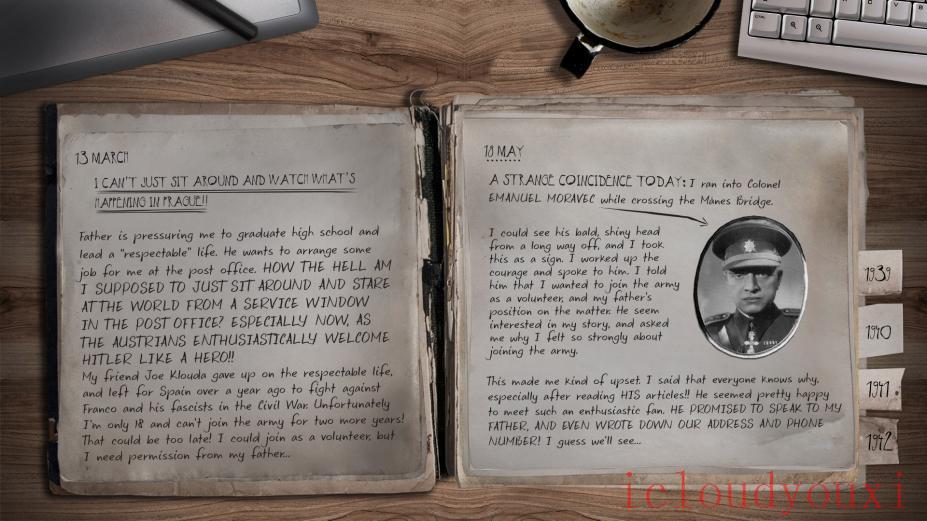 13 MARCH
I CAN'T JUST SIT AROUND AND WATCH WHAT'S
HAPPENING IN PRAGUE!!
Father is pressuring me to graduate high school and
lead a "respectable" life. He wants to arrange some
job for me at the post office. HOW THE HELL AM
I SUPPOSED TO JUST SIT AROUND AND STARE
AT THE WORLD FROM A SERVICE WINDOW
IN THE POST OFFICE? ESPECIALLY NOW, AS
THE AUSTRIANS ENTHUSIASTICALLY WELCOME
HITLER LIKE A HERO!!
My friend Joe Klouda gave up on the respectable life,
and left for Spain over a year ago to fight against
Franco and his fascists in the Civil War. Unfortunately
I'm only 18 and can't join the army for two more years!
That could be too late! I could join as a volunteer, but
I need permission from my father...
18 MAY
A STRANGE COINCIDENCE TODAY: I ran into Colonel
EMANUEL MORAVEC while crossing the Mánes Bridge.
I could see his bald, shiny head
from a long way off, and I took
this as a sign. I worked up the
courage and spoke to him. I told
him that I wanted to join the army
as a volunteer, and my father's
position on the matter. He seem
interested in my story, and asked
me why I felt so strongly about
joining the army.
This made me kind of upset. I said that everyone knows why,
especially after reading HIS articles!! He seemed pretty happy
to meet such an enthusiastic fan. HE PROMISED TO SPEAK TO MY
FATHER, AND EVEN WROTE DOWN OUR ADDRESS AND PHONE
NUMBER! I guess we'll see...
1939
1940
1941
1942
icloudyouxi